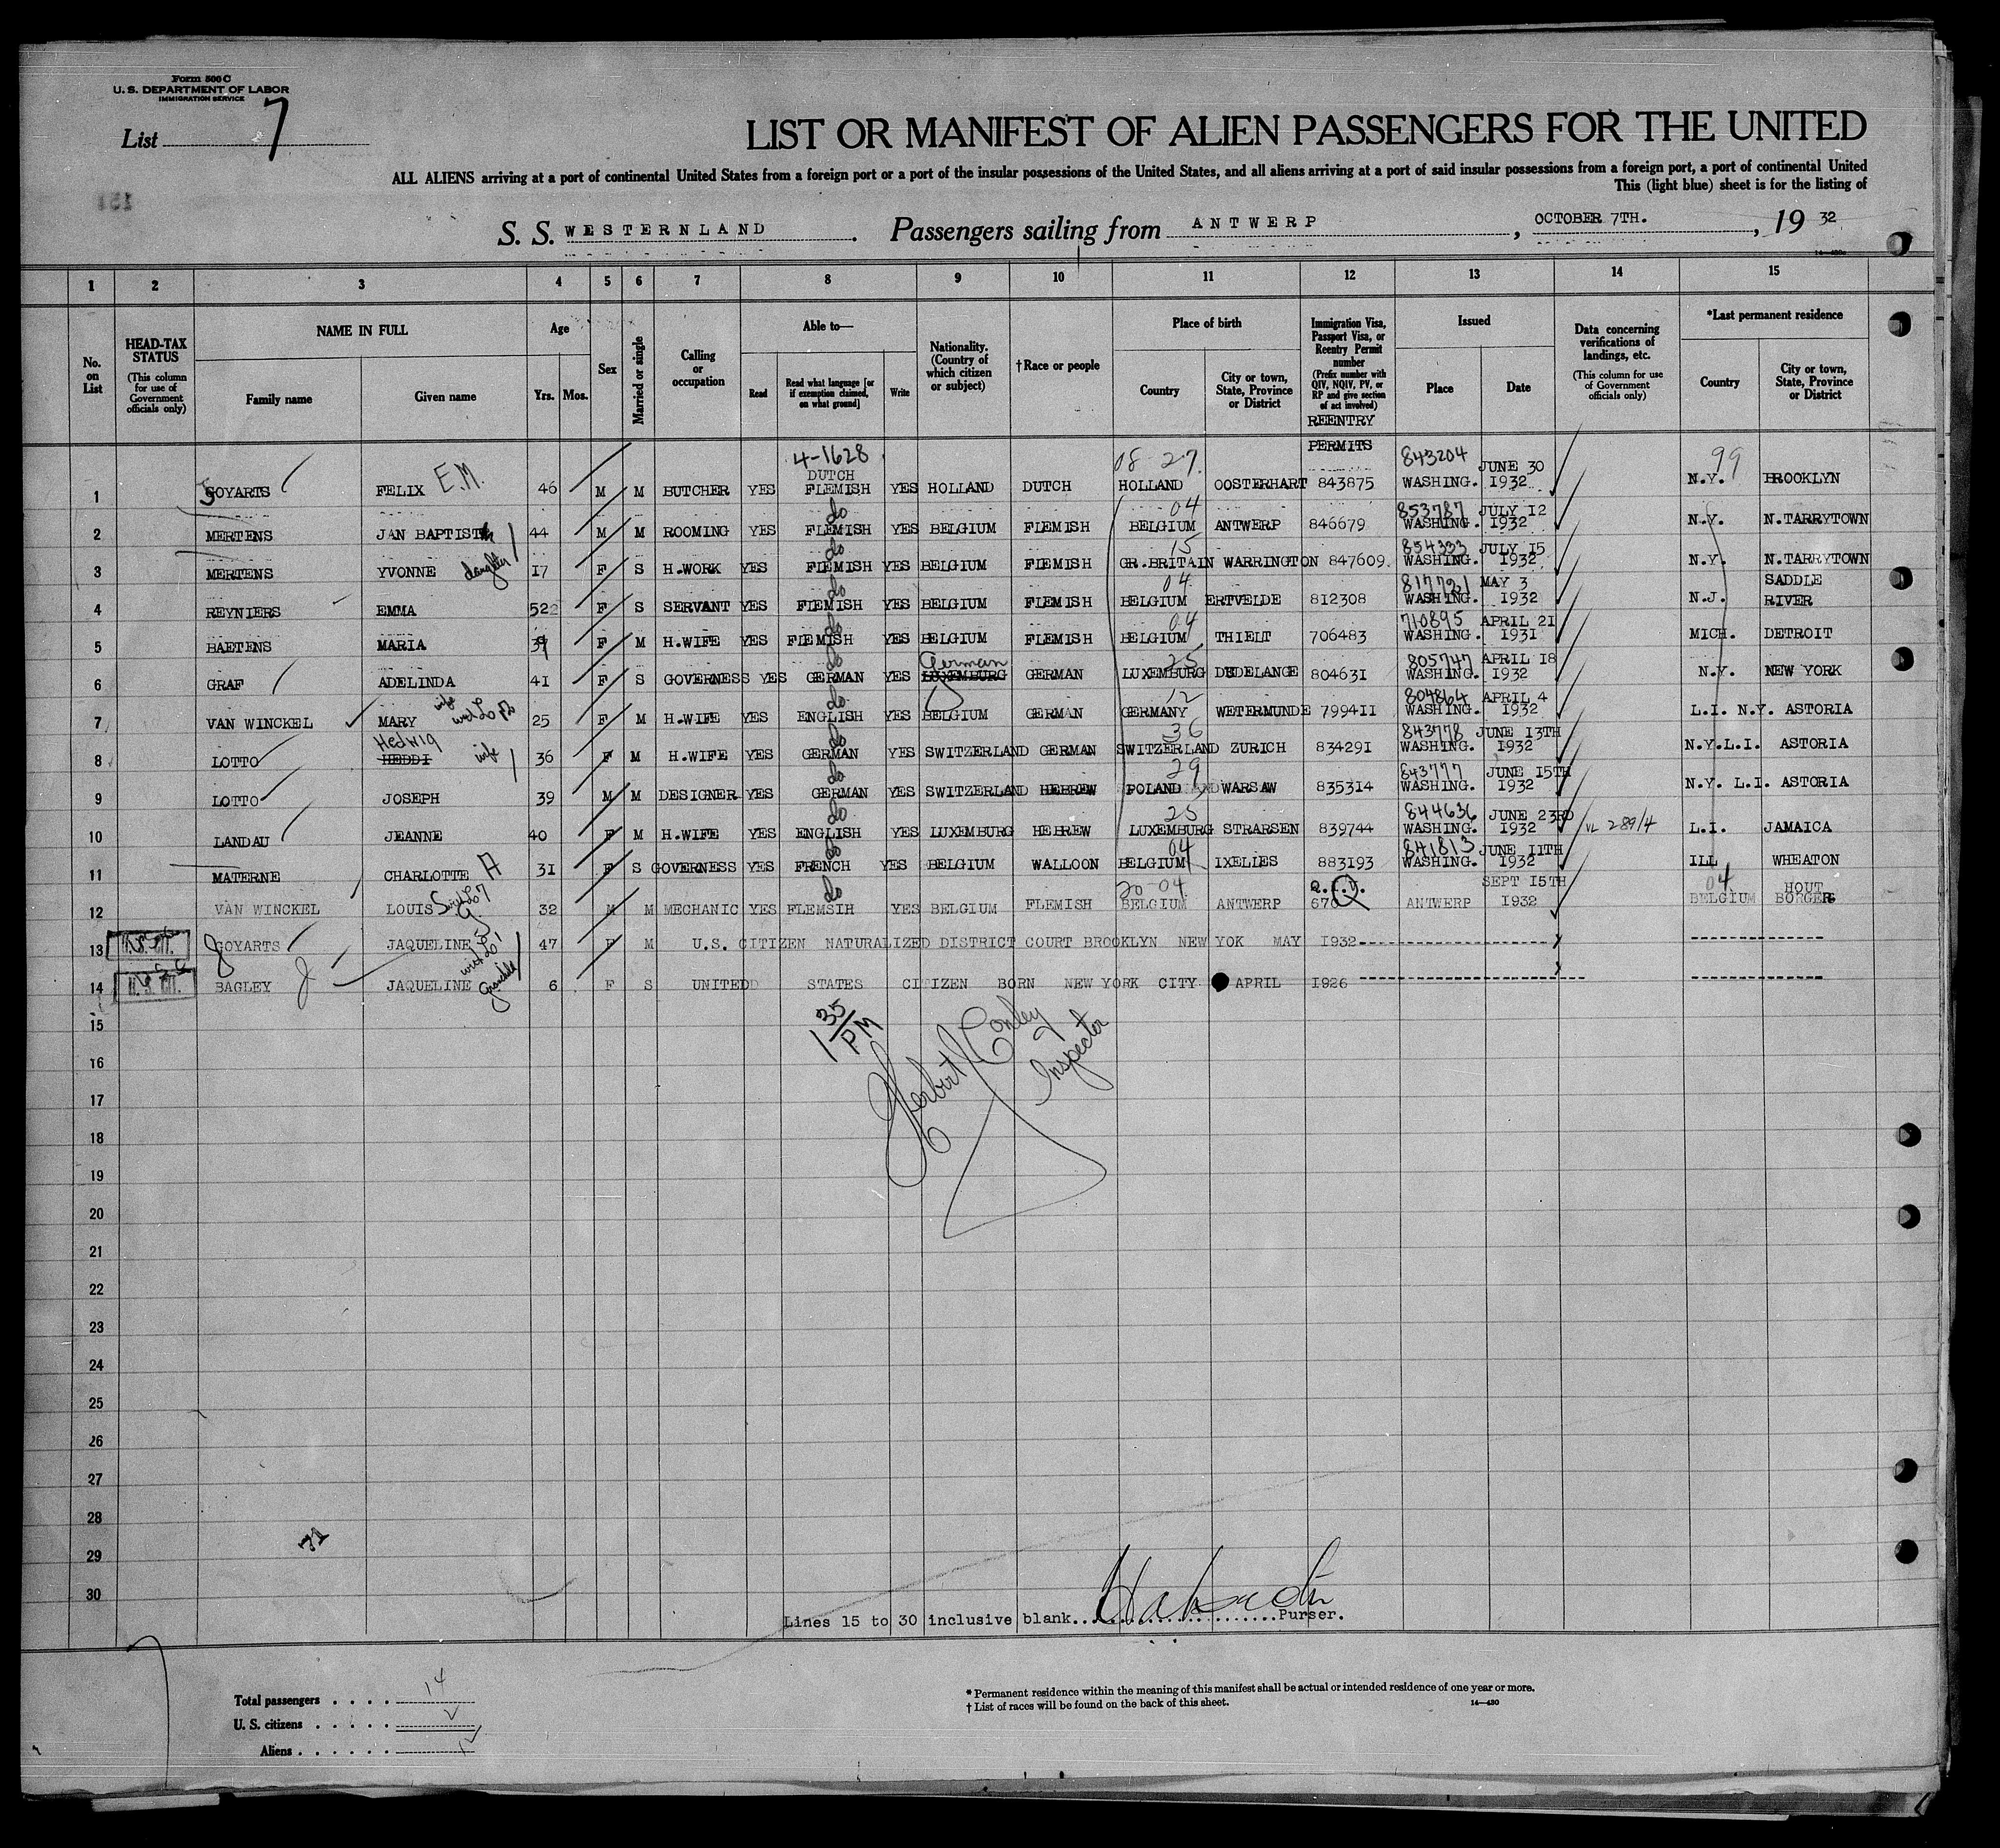 Form 500 C
U. S. DEPARTMENT OF LABOR
IMMIGRATION SERVICE
List 7
LIST OR MANIFEST OF ALIEN PASSENGERS FOR THE UNITED
ALL ALIENS arriving at a port of continental United States from a foreign port or a port of the insular possessions of the United States, and all aliens arriving at a port of said insular possessions from a foreign port, a port of continental United
This (light blue) sheet is for the listing of
S. S. WESTERNLAND . Passengers sailing from ANTWERP , OCTOBER 7TH. , 19 32
1 2 3 4 5 6 7 8 9 10 11 12 13 14 15
No. on List
HEAD-TAX STATUS (This column for use of Government officials only)
NAME IN FULL
Family name Given name
Age
Yrs. Mos.
Sex
Married or single
Calling or occupation
Able to—
Read Read what language [or if exemption claimed, on what ground] Write
Nationality. (Country of which citizen or subject)
†Race or people
Place of birth
Country City or town, State, Province or District
Immigration Visa, Passport Visa, or Reentry Permit number (Prefix number with QIV, NQIV, PV, or RP and give section of act involved)
REENTRY PERMITS
Issued
Place Date
Data concerning verifications of landings, etc. (This column for use of Government officials only)
*Last permanent residence
Country City or town, State, Province or District
4-1628 08-27. 843204 99
DUTCH JUNE 30
1 GOYARTS FELIX E.M. 46 M M BUTCHER YES FLEMISH YES HOLLAND DUTCH HOLLAND OOSTERHART 843875 WASHING. 1932 N.Y. BROOKLYN
do 04 853787 JULY 12
2 MERTENS JAN BAPTIST 44 M M ROOMING YES FLEMISH YES BELGIUM FLEMISH BELGIUM ANTWERP 846679 WASHING. 1932 N.Y. N.TARRYTOWN
do 15 854333 JULY 15
3 MERTENS YVONNE daughter 17 F S H.WORK YES FLEMISH YES BELGIUM FLEMISH GR.BRITAIN WARRINGTON 847609. WASHING. 1932 N.Y. N.TARRYTOWN
do 04 817721 MAY 3 SADDLE
4 REYNIERS EMMA 52 F S SERVANT YES FLEMISH YES BELGIUM FLEMISH BELGIUM ERTVELDE 812308 WASHING. 1932 N.J. RIVER
do 04 710895 APRIL 21
5 BAETENS MARIA 39 F M H.WIFE YES FLEMISH YES BELGIUM FLEMISH BELGIUM THIELT 706483 WASHING. 1931 MICH. DETROIT
do German 25 805747 APRIL 18
6 GRAF ADELINDA 41 F S GOVERNESS YES GERMAN YES LUXEMBURG GERMAN LUXEMBURG DUDELANGE 804631 WASHING. 1932 N.Y. NEW YORK
wife do 12 804864 APRIL 4
7 VAN WINCKEL MARY 25 F M H.WIFE YES ENGLISH YES BELGIUM GERMAN GERMANY WETERMUNDE 799411 WASHING. 1932 L.I. N.Y. ASTORIA
Hedwig do 36 843778 JUNE 13TH
8 LOTTO HEDDI wife 36 F M H.WIFE YES GERMAN YES SWITZERLAND GERMAN SWITZERLAND ZURICH 834291 WASHING. 1932 N.Y.L.I. ASTORIA
do 29 843777 JUNE 15TH
9 LOTTO JOSEPH 39 M M DESIGNER YES GERMAN YES SWITZERLAND HEBREW POLAND WARSAW 835314 WASHING. 1932 N.Y. L.I. ASTORIA
do 25 844636 JUNE 23RD
10 LANDAU JEANNE 40 F M H.WIFE YES ENGLISH YES LUXEMBURG HEBREW LUXEMBURG STRARSEN 839744 WASHING. 1932 VL 289/4 L.I. JAMAICA
do 04 841813 JUNE 11TH
11 MATERNE CHARLOTTE A 31 F S GOVERNESS YES FRENCH YES BELGIUM WALLOON BELGIUM IXELLES 883193 WASHING. 1932 ILL WHEATON
do 20-04 SEPT 15TH 04 HOUT
12 VAN WINCKEL LOUIS 32 M M MECHANIC YES FLEMSIH YES BELGIUM FLEMISH BELGIUM ANTWERP 670 ANTWERP 1932 BELGIUM BORGER
13 GOYARTS JAQUELINE 47 F M U.S. CITIZEN NATURALIZED DISTRICT COURT BROOKLYN NEW YOK MAY 1932
14 BAGLEY JAQUELINE 6 F S UNITED STATES CITIZEN BORN NEW YORK CITY APRIL 1926
15
1 35/PM
Herbert J Conley
Inspector
16
17
18
19
20
21
22
23
24
25
26
27
28
29
30
Lines 15 to 30 inclusive blank. Purser.
Total passengers 14
U. S. citizens 2
Aliens 12
* Permanent residence within the meaning of this manifest shall be actual or intended residence of one year or more.
† List of races will be found on the back of this sheet.
14—430